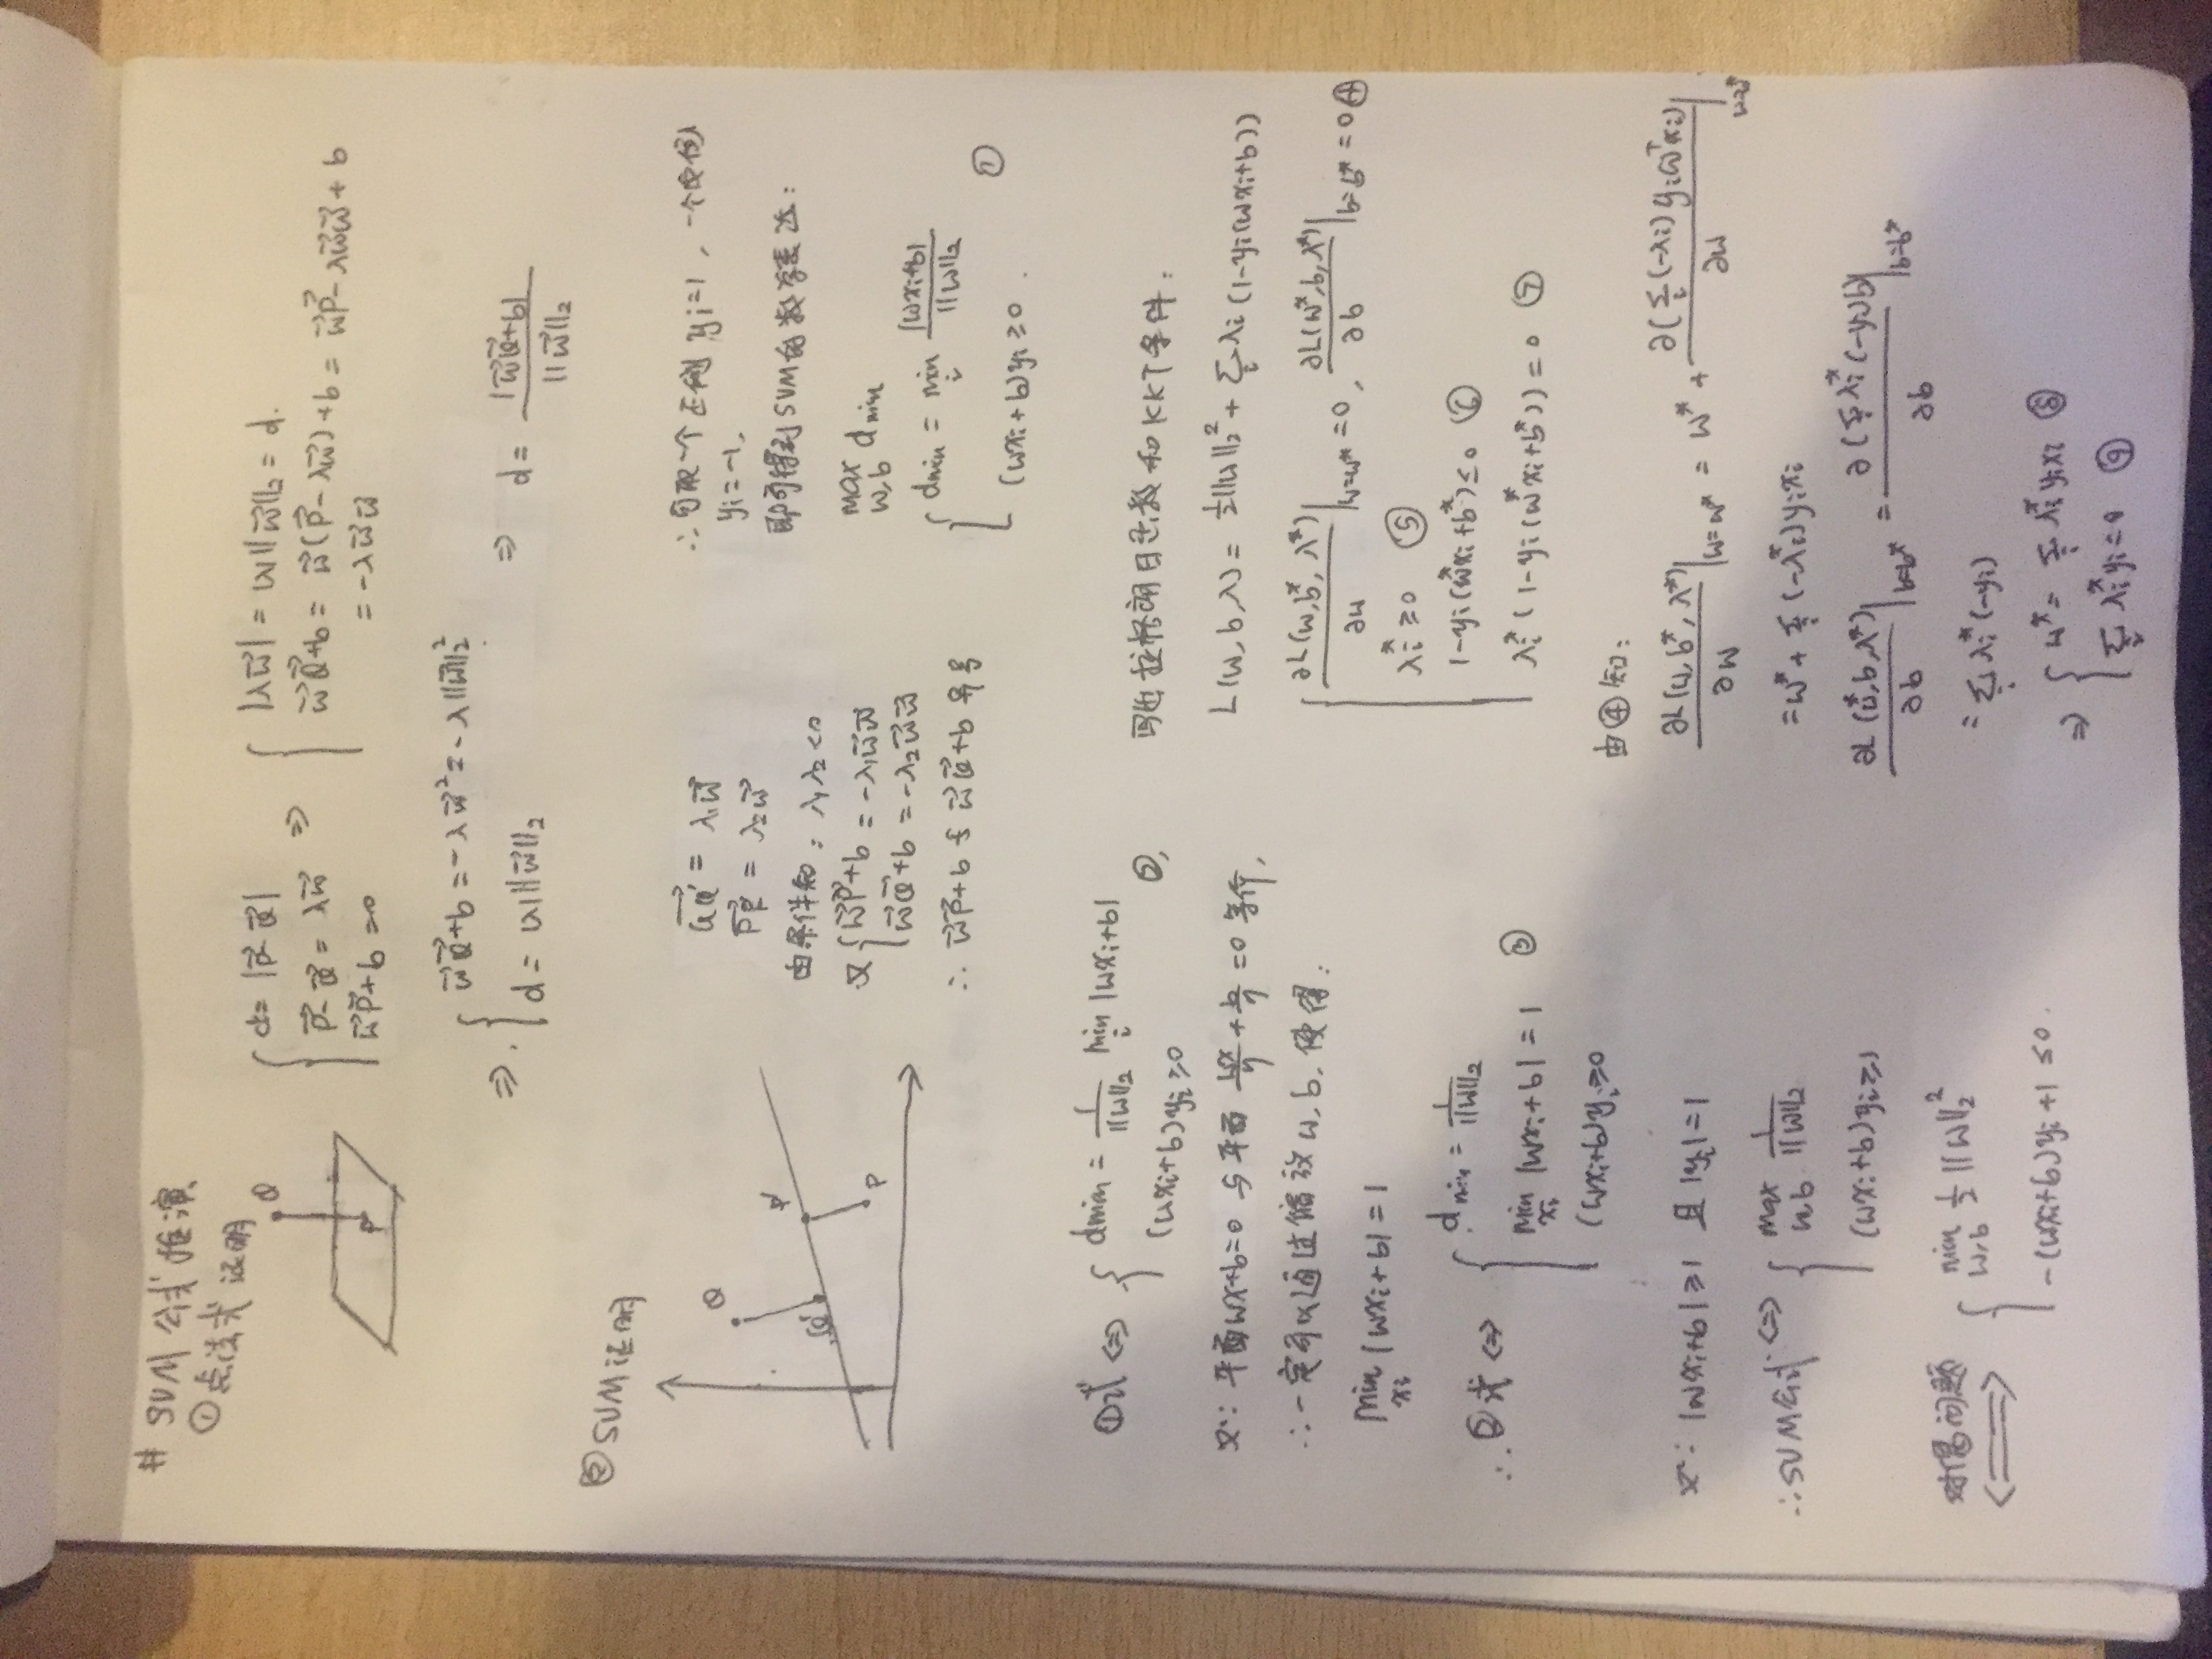 # SVM 公式推演
① 点法式证明
Q
P
{ d = |P⃗-Q⃗|
P⃗-Q⃗ = λw⃗
w⃗P⃗+b=0
⇒ { |λw⃗| = |λ| ||w⃗||₂ = d.
w⃗Q⃗+b = w⃗(P⃗-λw⃗)+b = w⃗P⃗-λw⃗w⃗+b
= -λw⃗w⃗
⇒ { w⃗Q⃗+b = -λw⃗² = -λ||w⃗||₂²
d = |λ| ||w⃗||₂
⇒ d = |w⃗Q⃗+b| / ||w⃗||₂
② SVM证明
Q
Q'
P'
P
QQ'⃗ = λ₁w⃗
PP'⃗ = λ₂w⃗
由条件知: λ₁λ₂<0
又 { w⃗P⃗+b = -λ₁w⃗w⃗
w⃗Q⃗+b = -λ₂w⃗w⃗
∴ w⃗P⃗+b 与 w⃗Q⃗+b 异号
∴ 可取一个正例 yᵢ=1, 一个反例
yᵢ=-1,
即可得到SVM的数学表达:
max_{w,b} d_min
{ d_min = min_i |wxᵢ+b| / ||w||₂
(wxᵢ+b)yᵢ≥0. ①
①式 ⇔ { d_min = 1/||w||₂ min_i |wxᵢ+b|
(wxᵢ+b)yᵢ≥0 ②,
又∵ 平面wx+b=0 与平面 wx/η + b/η =0 等价,
∴ 一定可以通过缩放 w, b, 使得:
min_{xᵢ} |wxᵢ+b| = 1
∴ ②式 ⇔ { d_min = 1/||w||₂
min_{xᵢ} |wxᵢ+b| = 1 ③
(wxᵢ+b)yᵢ≥0
又∵ |wxᵢ+b|≥1 且 |yᵢ|=1
∴ SVM公式 ⇔ { max_{w,b} 1/||w||₂
(wxᵢ+b)yᵢ≥1
对偶问题 ⇔ { min_{w,b} ½||w||₂²
-(wxᵢ+b)yᵢ+1 ≤0.
写出拉格朗日函数和KKT条件:
L(w,b,λ) = ½||w||₂² + Σᵢ λᵢ(1-yᵢ(wxᵢ+b))
{ ∂L(w,b*,λ*)/∂w |w=w* =0, ∂L(w*,b,λ*)/∂b |b=b* =0 ④
λᵢ*≥0 ⑤
1-yᵢ(w*xᵢ+b*)≤0 ⑥
λᵢ*(1-yᵢ(w*xᵢ+b*))=0 ⑦
由④知:
∂L(w,b*,λ*)/∂w |w=w* = w* + ∂(Σᵢ(-λᵢ)yᵢwᵀxᵢ)/∂w |w=w*
= w* + Σᵢ(-λᵢ*)yᵢxᵢ
∂L(w*,b,λ*)/∂b |b=b* = ∂(Σᵢλᵢ*(-yᵢ)b)/∂b |b=b*
= Σᵢλᵢ*(-yᵢ)
⇒ { w* = Σᵢ λᵢ*yᵢxᵢ ⑧
Σᵢ λᵢ*yᵢ=0 ⑨